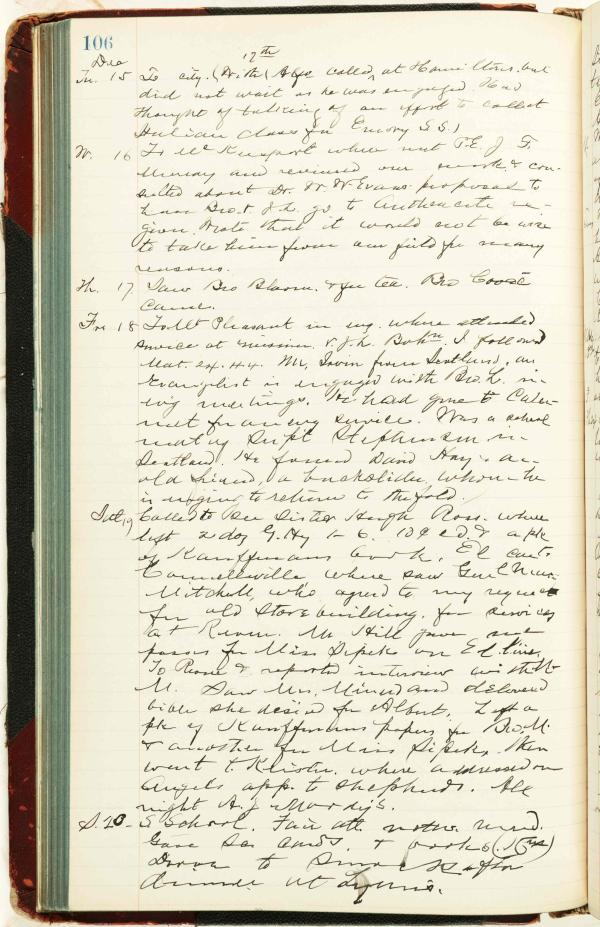 106
Dec 17th
Tu. 15 To city. (With Alfe called, at Hamiltons. but
did not wait as he was engaged. Had
thought of talking of an effort to collect
Italian class for Emory S.S.)
W. 16 To McKeesport where met P.E. J. F.
Murray and reviewed our work & con-
sulted about Dr. W. W. Evans proposal to
have Bro. V. J. L. go to Anthracite re-
gion. Wrote that it would not be wise
to take him from our field for many
reasons.
Th. 17 Saw Bro Bloom. & for tea. Bro
came.
Fri 18 To Mt Pleasant in evg. where attended
service at mission. V. J. L. I followed
Mat. 24.44. Mr. Irvin from Scotland, an
Evangelist is engaged with Bro. L. in
evg meetings. He had gone to Calu-
met for an evg service. Was a school
mate of Supt Stephenson in
Scotland. He found David Hay, an
old friend, a backslider, whom he
is urging to return to the fold.
Sat. 19 Called to see Sister Hugh Ross. where
left 2 doz G. Hy 1-6. 10¢ ed. & a pk
of Kauffmans book. El cars
Connellsville where saw Genl
Mitchell, who agreed to my request
for old store building, for services
at Rever. Mr Hill gave me
passes for Miss Sipeks on El. line.
To & reported interview with Mr
M. Saw Mrs. Minerd and delivered
bible she desired for Albert. Left a
pk of Kauffmans papers for Bro. M.
& another for Miss Sipeks. Then
went to where addressed on
Angels app. to shepherds. All
night A. J.
S. 20 - S School. Fair att. notwe.
Gave cards, & books
Drove to after
dinner at